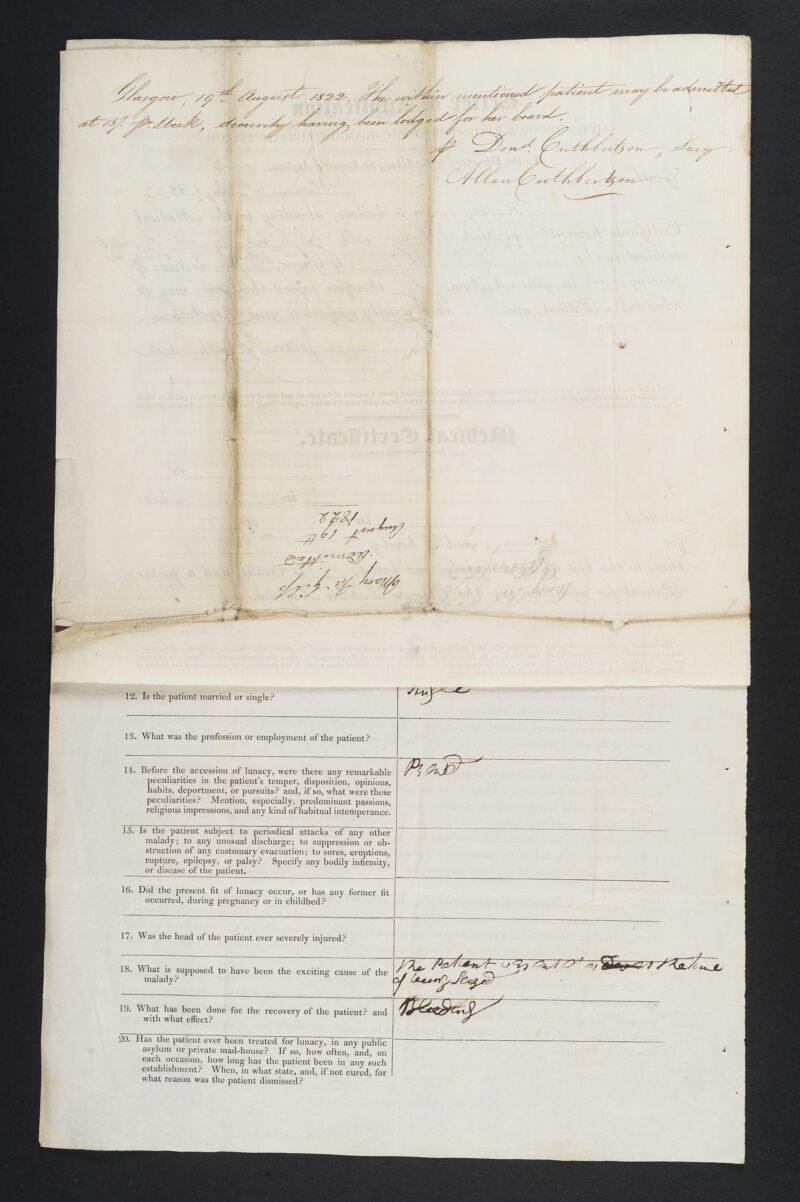 Glasgow, 19th August 1822. The within mentioned patient may be admitted
at 15/. pr. Week, security having been lodged for her board.
p Dond. Cuthbertson, Secy
Allan Cuthbertson
Mary
Admitted
August 19th
1822
Medical Certificate.
12. Is the patient married or single?
Single
13. What was the profession or employment of the patient?
14. Before the accession of lunacy, were there any remarkable
peculiarities in the patient's temper, disposition, opinions,
habits, deportment, or pursuits? and, if so, what were these
peculiarities? Mention, especially, predominant passions,
religious impressions, and any kind of habitual intemperance.
15. Is the patient subject to periodical attacks of any other
malady; to any unusual discharge; to suppression or ob-
struction of any customary evacuation; to sores, eruptions,
rupture, epilepsy, or palsy? Specify any bodily infirmity,
or disease of the patient.
16. Did the present fit of lunacy occur, or has any former fit
occurred, during pregnancy or in childbed?
17. Was the head of the patient ever severely injured?
18. What is supposed to have been the exciting cause of the
malady?
The Patient the time
of being Seized
19. What has been done for the recovery of the patient? and
with what effect?
Bleeding
20. Has the patient ever been treated for lunacy, in any public
asylum or private mad-house? If so, how often, and, on
each occasion, how long has the patient been in any such
establishment? When, in what state, and, if not cured, for
what reason was the patient dismissed?